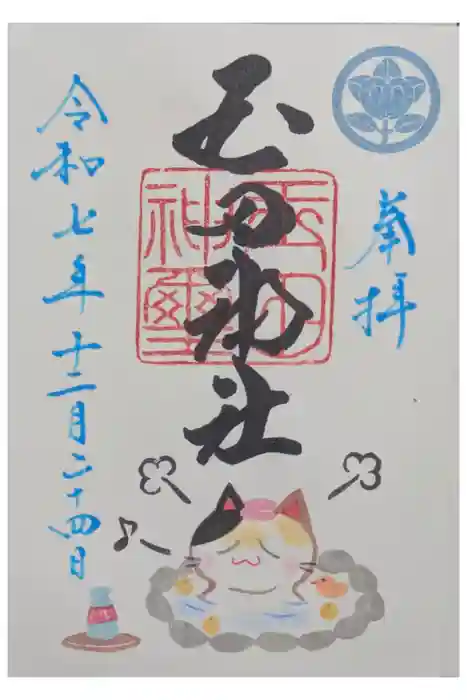 奉拝
玉田神社
玉田
神璽
令和七年十二月二十四日